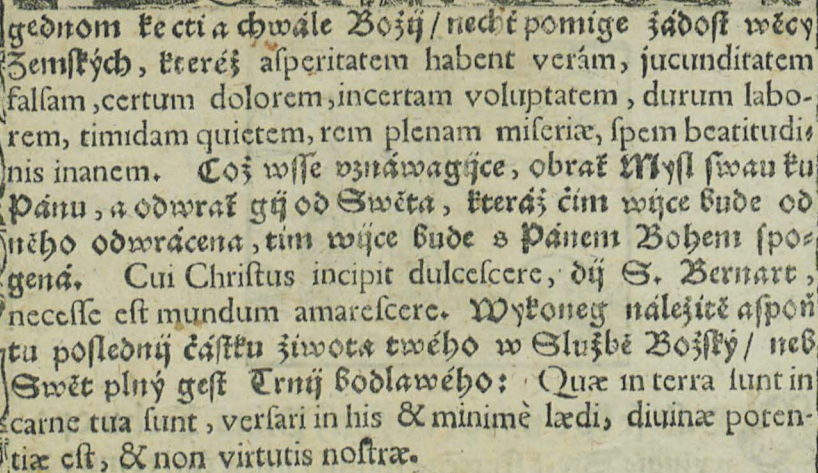 gednom ke cti a chwále Božij / nechť pomige žádost wěcy
Zemských, kteréž aſperitatem habent verám, jucunditatem
falſam, certum dolorem, incertam voluptatem, durum labo-
rem, timidam quietem, rem plenam miſeriæ, ſpem beatitudi-
nis inanem. Což wſſe vznáwagijce, obrať Myſl ſwau ku
Pánu, a odwrať gij od Swěta, kteráž čim wijce bude od
něho odwrácena, tim wijce bude s Pánem Bohem ſpo-
gená. Cui Chriſtus incipit dulceſcere, dij S. Bernart,
neceſſe eſt mundum amareſcere. Wykoneg náležitě aſpoň
tu poſlednij částku života twého w Službě Božſký / neb
Swět plný geſt Trnij bodlawého: Quæ in terra ſunt in
carne tua ſunt, verſari in his & minimè lædi, diuinæ poten-
tiæ eſt, & non virtutis noſtræ.